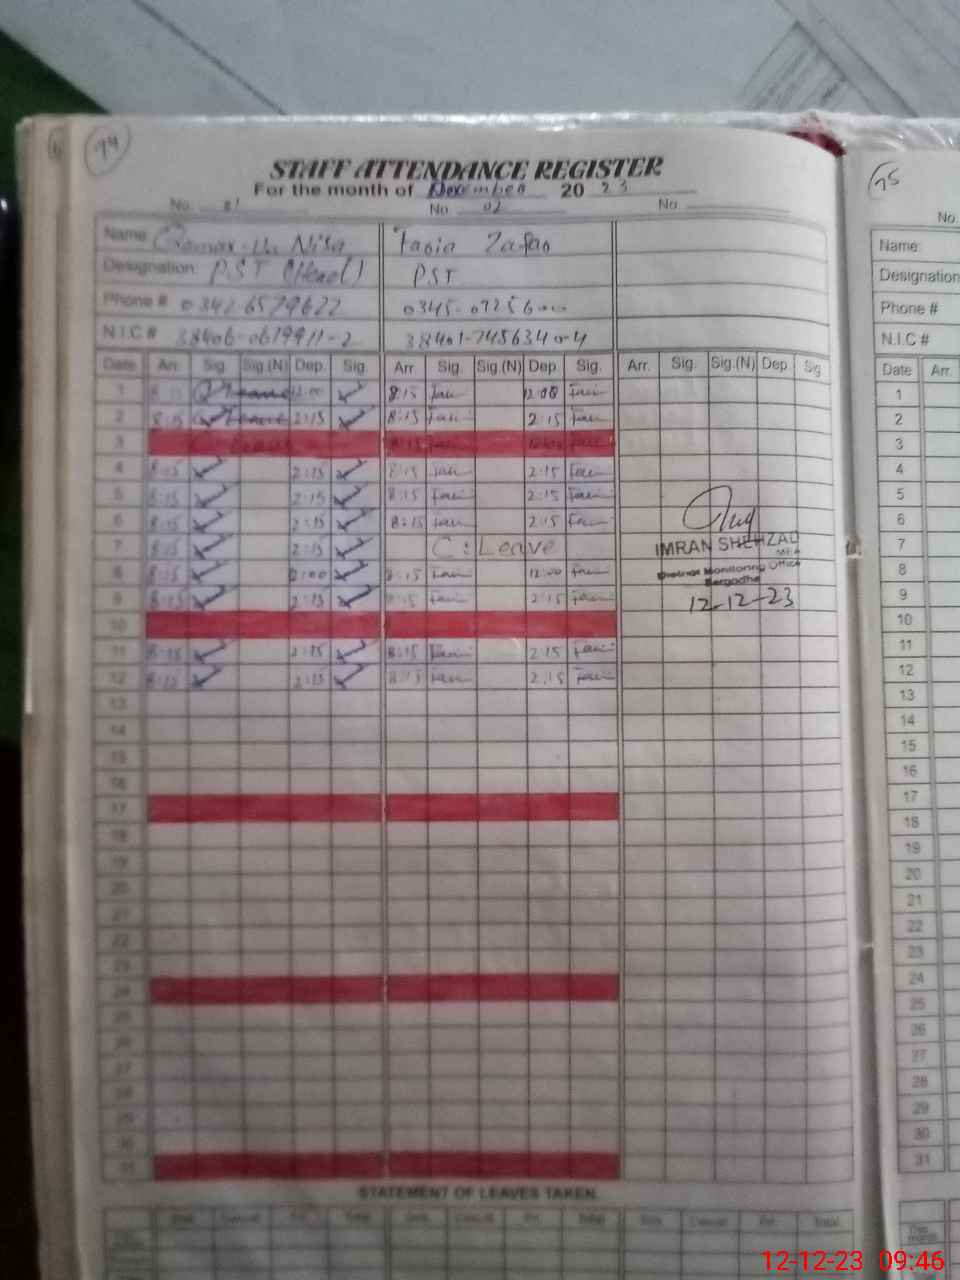 74
STAFF ATTENDANCE REGISTER
For the month of December 20 23
No. 01 No. 02 No.
Name: Qamar-un Nisa Fazia Zafar
Designation: P.S.T (Head) P.S.T
Phone # 0342 6579622 0345-
N.I.C # 38406-0619911-2 38401-745634 0-4
Date Arr. Sig. Sig.(N) Dep. Sig. Arr. Sig. Sig.(N) Dep. Sig. Arr. Sig. Sig.(N) Dep. Sig
1 Leave 12:00 8:15 12:00
2 8:15 Leave 2:15 8:15 2:15
3 Leave 8:15
4 8:15 2:15 8:15 2:15
5 8:15 2:15 8:15 2:15
6 8:15 2:15 8:15 2:15
7 8:15 2:15 C:Leave
8 8:15 2:00 8:15 12:00
9 8:15 2:15 8:15 2:15
10
11 8:15 2:15 8:15 2:15
12 8:15 2:15 8:15 2:15
13
14
15
16
17
18
19
20
21
22
23
24
25
26
27
28
29
30
31
IMRAN SHEHZAD
MEA
District Monitoring Office
Sargodha
12-12-23
STATEMENT OF LEAVES TAKEN.
Casual Total Casual Total Casual Total.
75
No.
Name:
Designation
Phone #
N.I.C #
Date Arr.
1
2
3
4
5
6
7
8
9
10
11
12
13
14
15
16
17
18
19
20
21
22
23
24
25
26
27
28
29
30
31
12-12-23 09:46